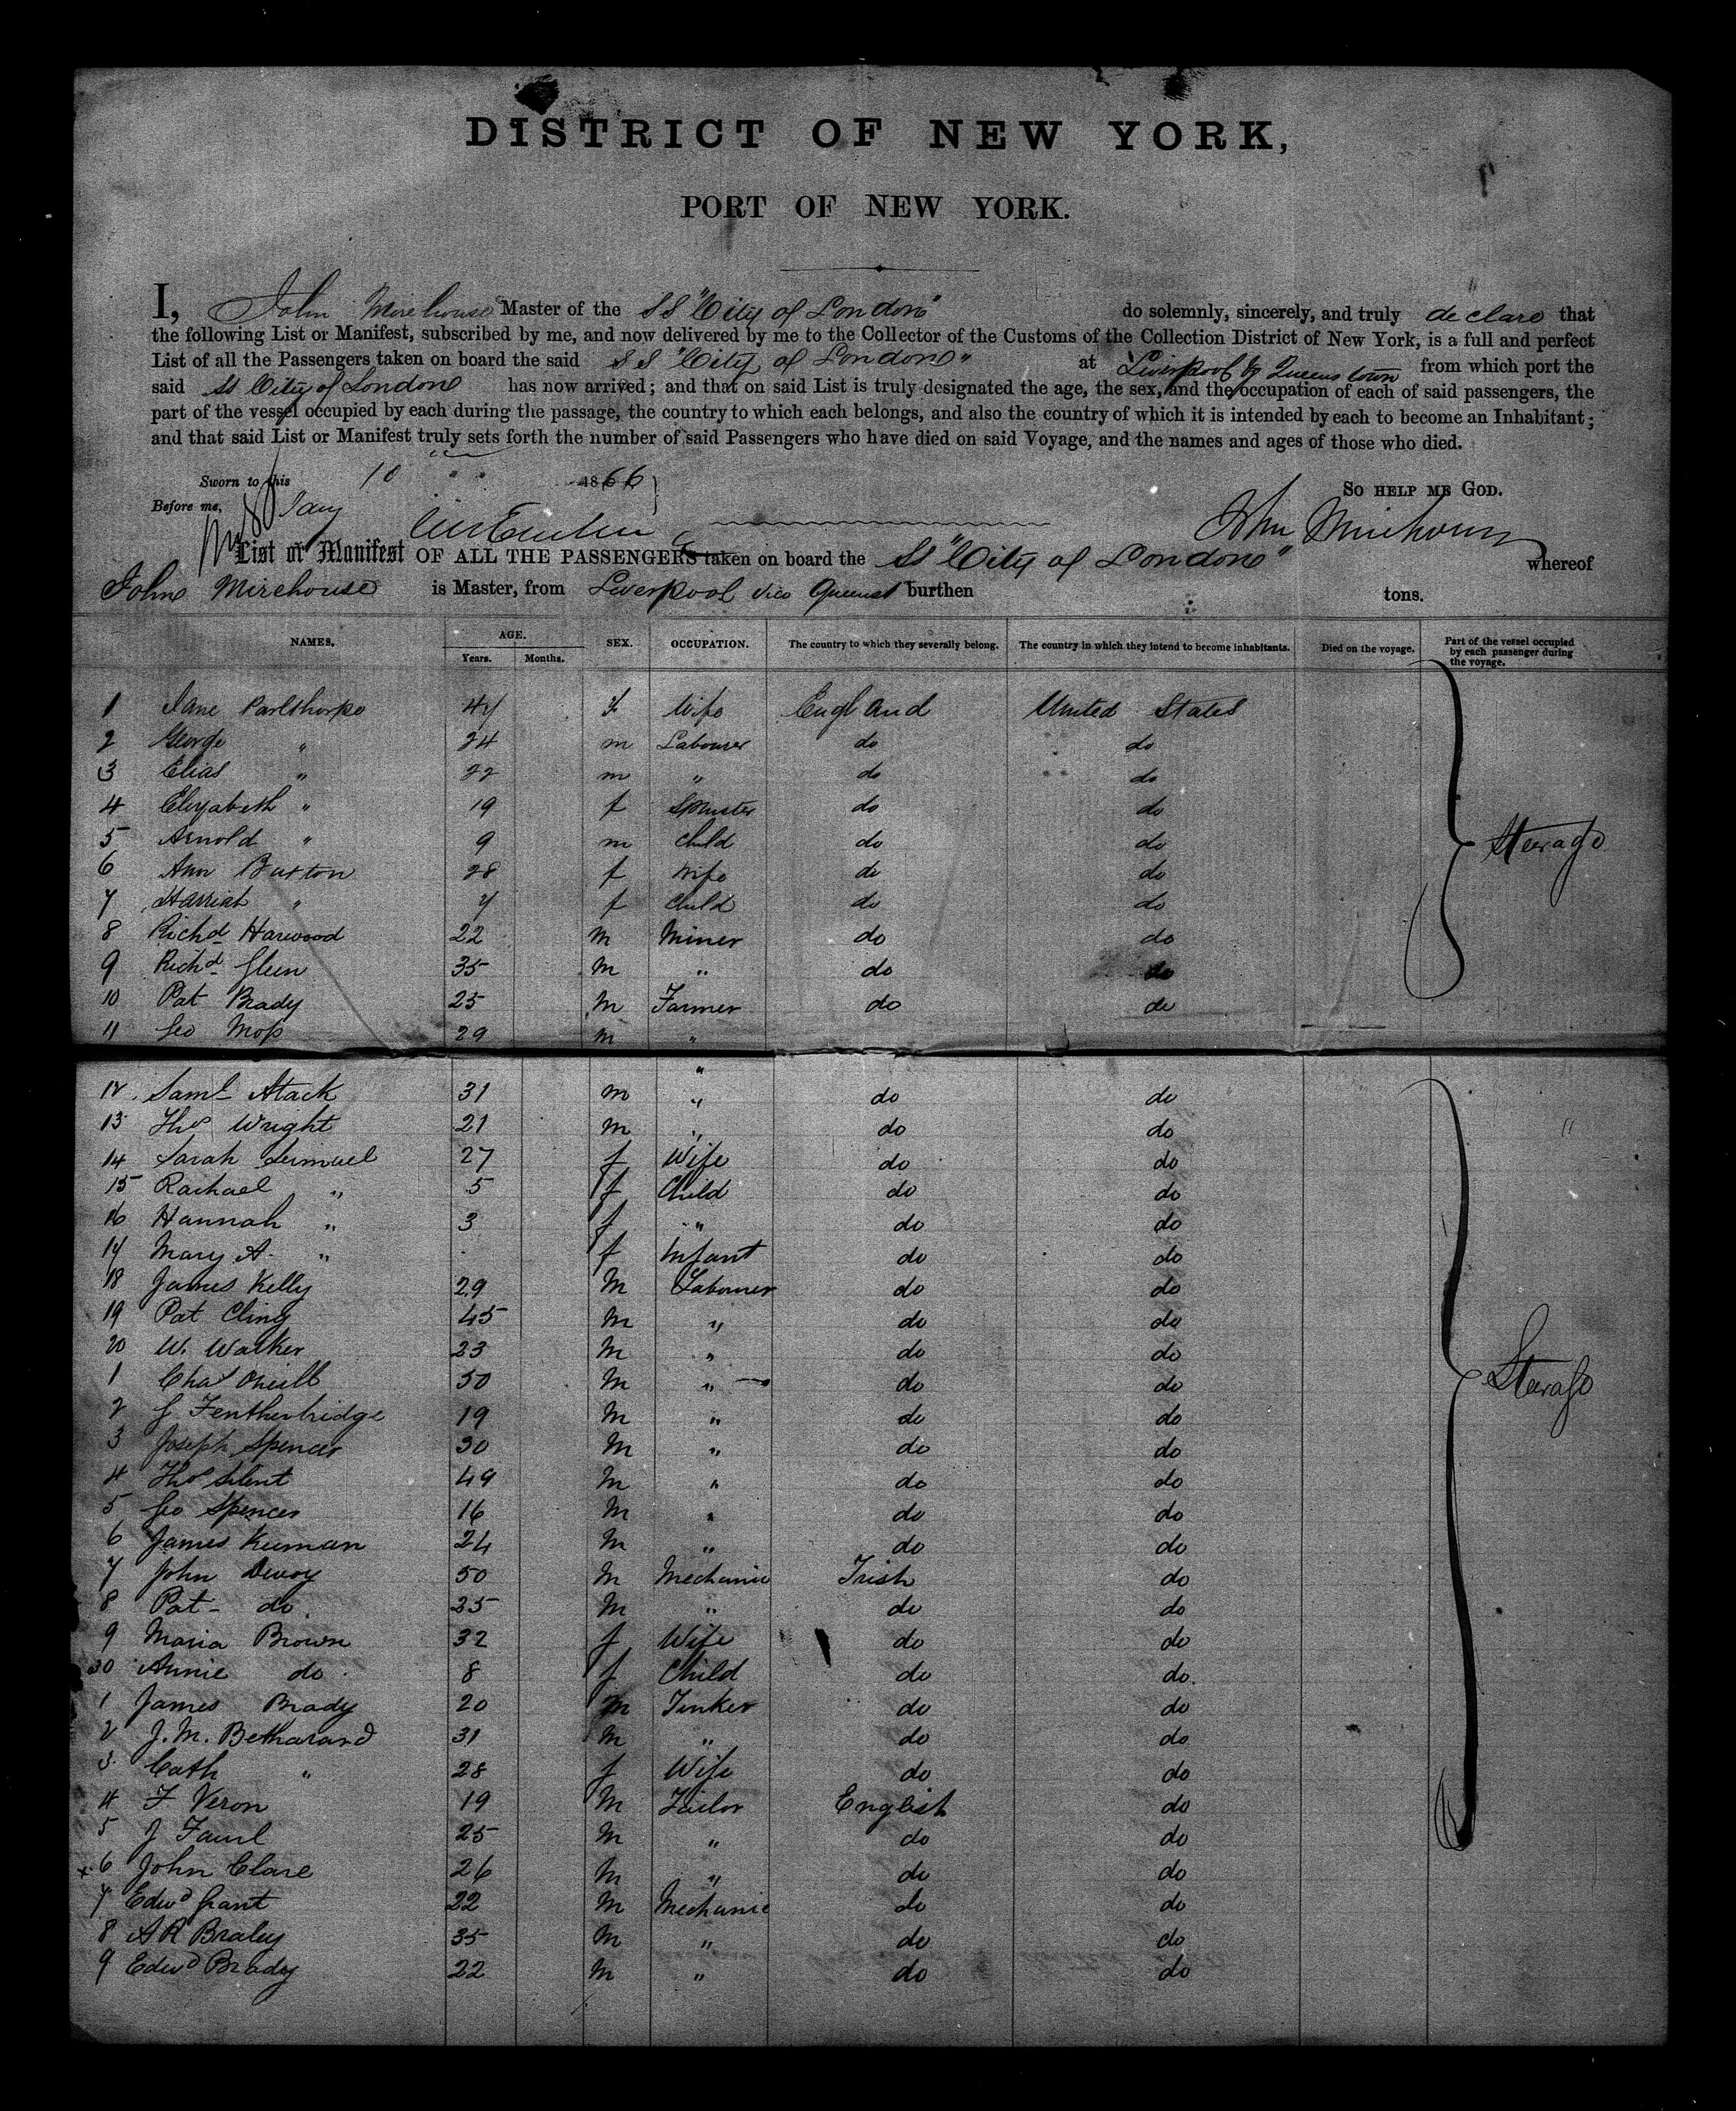 DISTRICT OF NEW YORK,
PORT OF NEW YORK.
I, John Mirehouse Master of the SS "City of London" do solemnly, sincerely, and truly declare that
the following List or Manifest, subscribed by me, and now delivered by me to the Collector of the Customs of the Collection District of New York, is a full and perfect
List of all the Passengers taken on board the said SS "City of London" at Liverpool by Queenstown from which port the
said SS City of London has now arrived; and that on said List is truly designated the age, the sex, and the occupation of each of said passengers, the
part of the vessel occupied by each during the passage, the country to which each belongs, and also the country of which it is intended by each to become an Inhabitant;
and that said List or Manifest truly sets forth the number of said Passengers who have died on said Voyage, and the names and ages of those who died.
Sworn to this 10 1866
SO HELP ME GOD.
Before me, Jany
John Mirehouse
List or Manifest OF ALL THE PASSENGERS taken on board the SS "City of London" whereof
John Mirehouse is Master, from Liverpool via Queenst burthen tons.
NAMES. AGE. Years. Months. SEX. OCCUPATION. The country to which they severally belong. The country in which they intend to become inhabitants. Died on the voyage. Part of the vessel occupied by each passenger during the voyage.
1 Jane Parlthorpe 47 f Wife England United States
2 George " 24 m Labourer do do
3 Elias " 22 m " do do
4 Elizabeth " 19 f Spinster do do
5 Arnold " 9 m Child do do Steerage
6 Ann Buxton 28 f Wife do do
7 Harriah " 7 f Child do do
8 Richd Harwood 22 M Miner do do
9 Richd Glen 35 M " do do
10 Pat Brady 25 M Farmer do do
11 Geo Moss 29 M "
12 Saml Stack 31 m " do do
13 Thos Wright 21 m " do do "
14 Sarah Lemuel 27 f Wife do do
15 Rachael " 5 f Child do do
16 Hannah " 3 f " do do
17 Mary A. " f Infant do do
18 James Kelly 29 M Labourer do do
19 Pat Cling 45 M " do do
20 W. Walker 23 M " do do
1 Chas Oneill 50 M " do do Steerage
2 J Fentherbridge 19 M " do do
3 Joseph Spencer 30 M " do do
4 Thos Silent 49 M " do do
5 Geo Spencer 16 M " do do
6 James Keenan 24 M " do do
7 John Devoy 50 M Mechanic Irish do
8 Pat- do. 25 M " do do
9 Maria Brown 32 f Wife do do
30 Annie do 8 f Child do do.
1 James Brady 20 M Tinker do do
2 J. M. Betharand 31 M " do do
3 Cath " 28 f Wife do do
4 F Veron 19 M Tailor English do
5 J 25 M " do do
x 6 John Clare 26 M " do do
7 Edwd Grant 22 M Mechanic do do
8 A R Braley 35 M " do do
9 Edwd Brady 22 M " do do